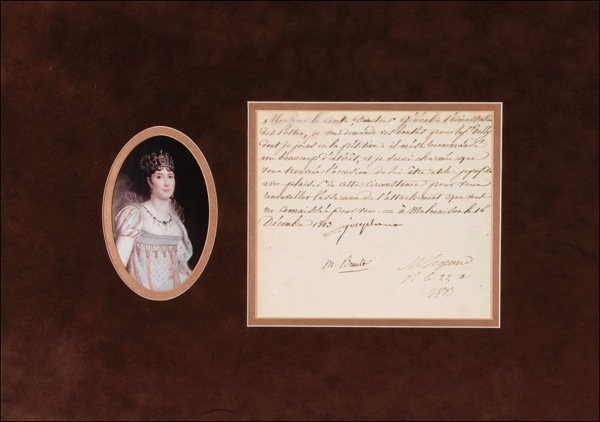 Monsieur le comte Directeur Général de l'administration
des Postes, je vous demande vos bontés pour le S.
dont je joins ici la pétition: il m'est recommandé
avec beaucoup d'intérêt, et je serai charmée que
vous trouviez l'occasion de lui être utile. je profite
avec plaisir de cette circonstance pour vous
renouveller l'assurance de l'attachement que vous
me connaissez pour vous = à Malmaison le 16
Décembre 1813 josephine
M.
M.
le 22 x
1813